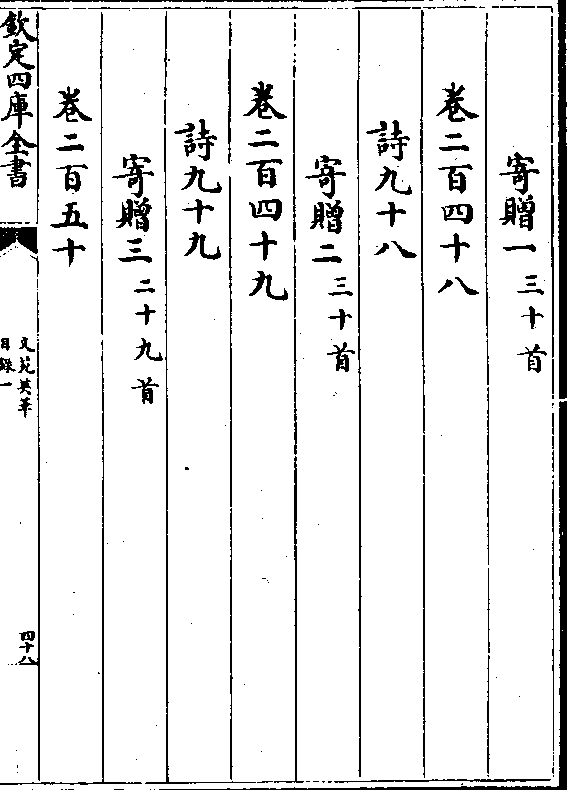 寄贈一三十首
卷二百四十八
詩九十八
寄贈二三十首
卷二百四十九
詩九十九
寄贈三二十九首
卷二百五十
欽定四庫全書
文苑英華
目録一
四十八